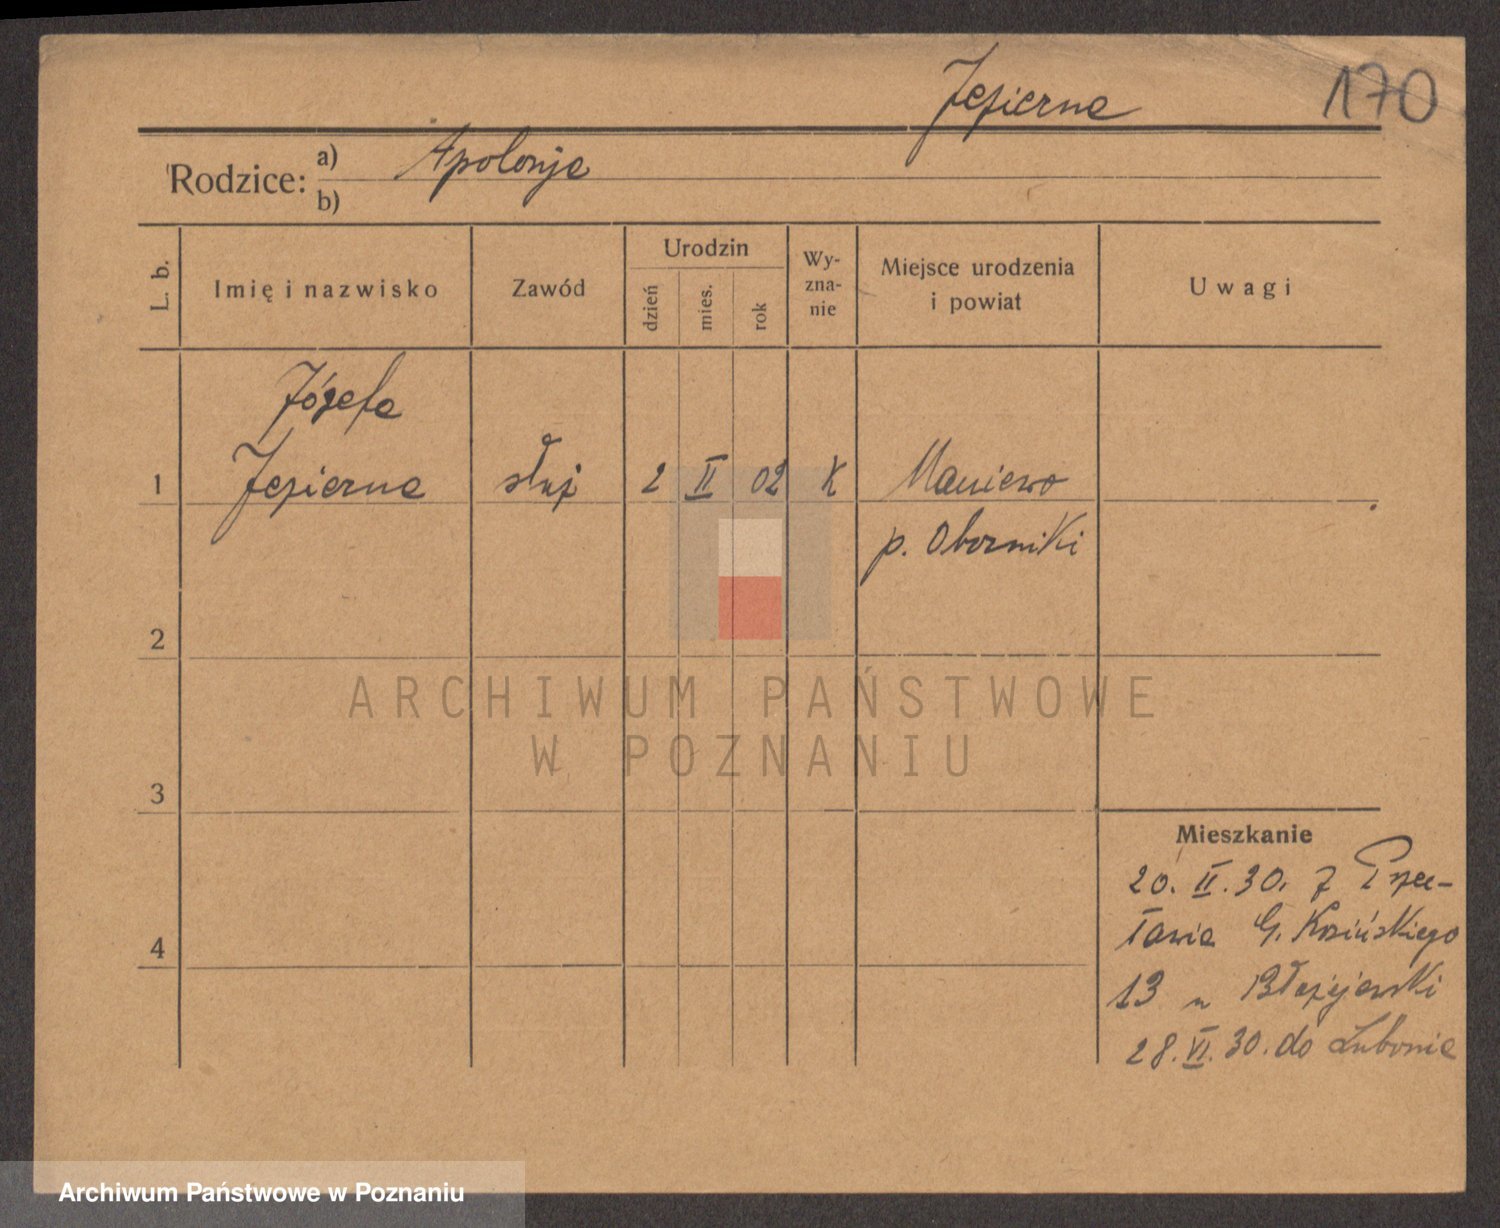 Jezierna
170
Rodzice: a) Apolonja
b)
L. b.
Imię i nazwisko
Zawód
Urodzin
dzień
mies.
rok
Wy-
zna-
nie
Miejsce urodzenia
i powiat
Uwagi
Józefa
1 Jezierna służ 2 II 02 K Maniewo
p. Oborniki
2
ARCHIWUM PAŃSTWOWE
W POZNANIU
3
Mieszkanie
20. II. 30. z Przec-
ławia G. Kosińskiego
4
13 u Błażejewski
28. VI. 30. do Lubonia
Archiwum Państwowe w Poznaniu